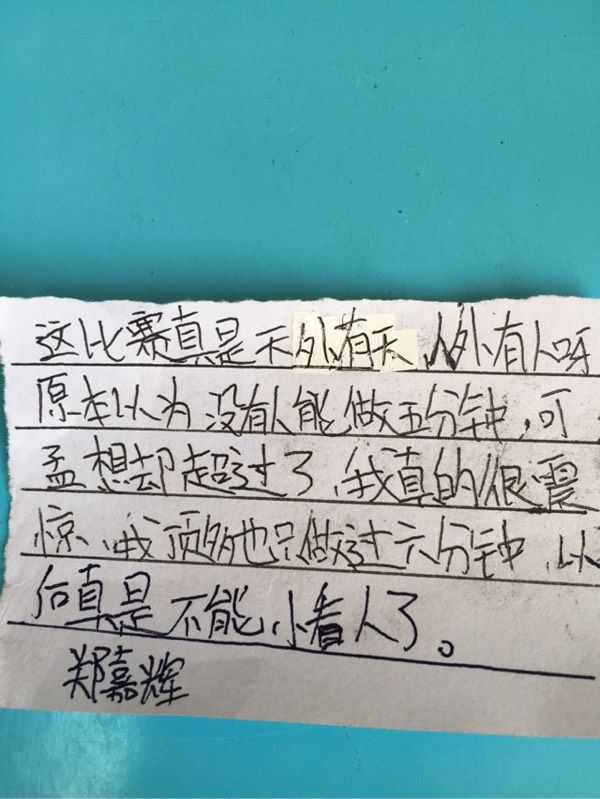 这比赛真是天外有天,人外有人呀
原本以为没有人能做五分钟,可
孟想却超过了,我真的很震
惊,我顶多也只做过六分钟,以
后真是不能小看人了。
郑嘉辉